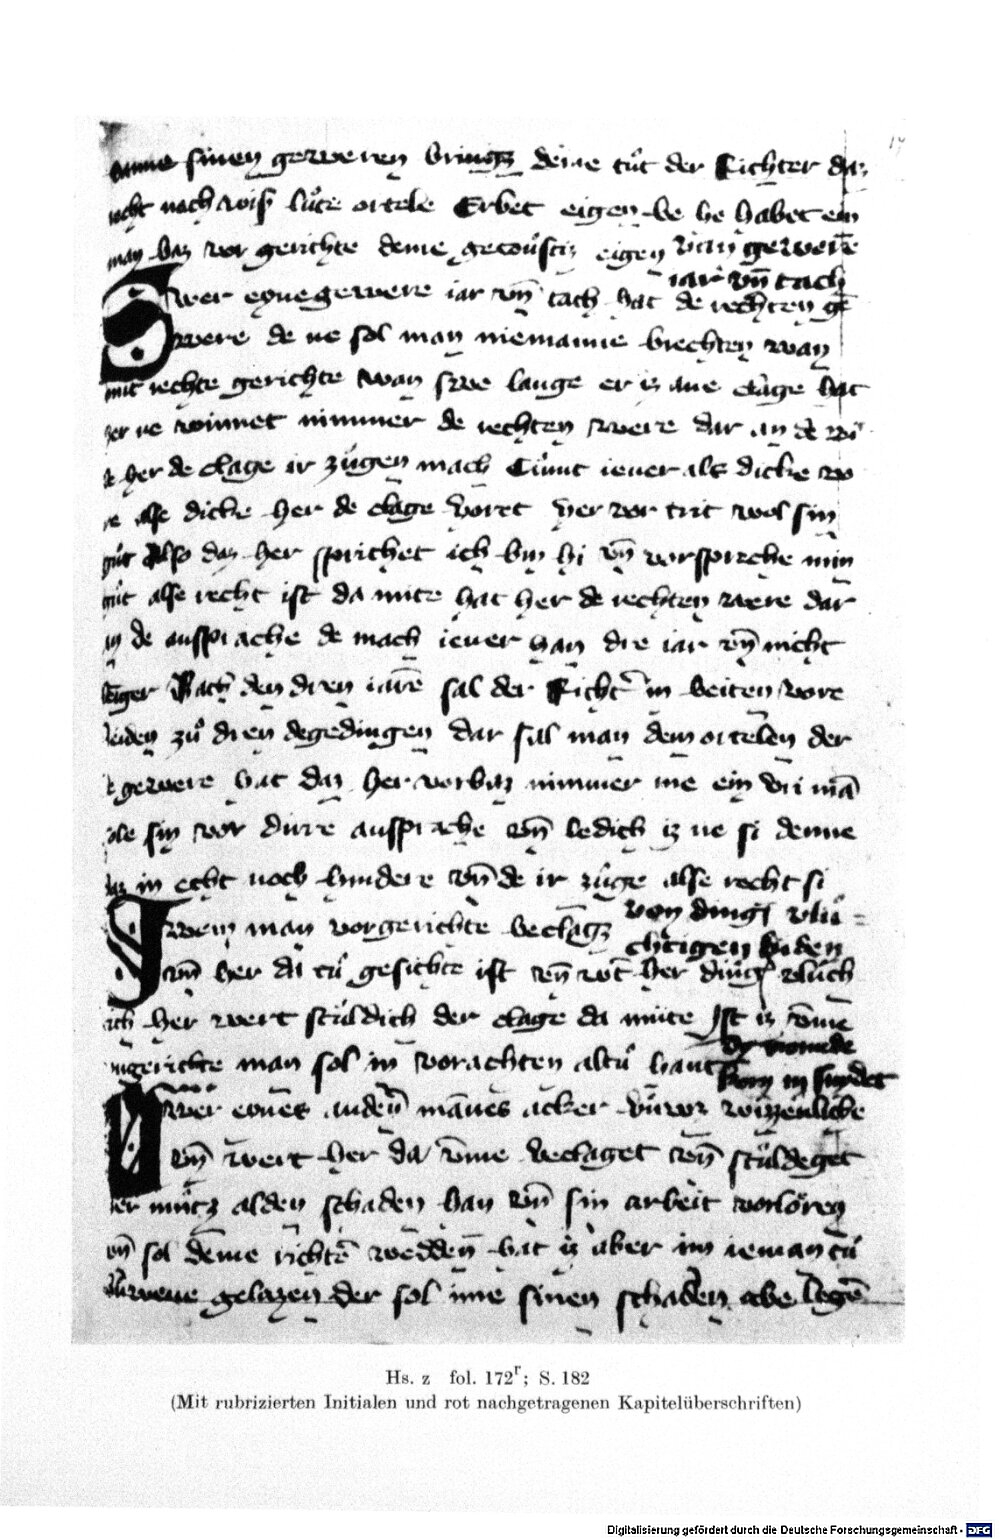 sinen geweren bringz deme tůt der Richter da
recht noch wiſ luͦte ortele Erbet eigen he habet ein
may daz vor gerichte deme eigen Van gewere
iar vn̄ tach
Swer eyne gewere iar vn̄ tach hat de rechten ge
were de ne sol man niemanne brechten wan
mit rechte gerichte wan swe lange er iz ane clage hat
ne winnet nimmer de rechten were dar an de wi
her de clage ir zůgen mach Cůmt iener als dicke vo
re alse dicke her de clage horet her vor trit wol sin
gůt Also daz her sprichet ich bin hi vn̄ vorspreche min
gůt alse recht ist da mite hat her de rechten were dar
in de ansprache de mach iener han dre iar vn̄ nicht
leg̃er Nach den dren iarē sal der Richt̃ in beiten vore
beiden zů dren degedingen dar sal man dem ortelen der
gewere hat daz her vorbaz nimmer me ein vri mā
ole sin vor dirre ansprache vn̄ ledich iz ne si denne
daz in echt noch hindere vn̄ de ir zůge alse recht si
Swem man vorgerichte beclagz von dingſ vlů=
chtigen luden
vm̄ her da zů gesichte ist vn̄ wt̄ her dingſ vluch
tich her wert sculdich der clage da mite Ist iz vm̄e
ungerichte man sol in vorachten altů hant
korn in snydet
Swer eynes anderē mānes acker wizzenliche
vn̄ wert her da vm̄e beclaget vn̄ sculdeget
her můtz alden schaden han vn̄ sin arbeit vorloren
vn̄ sol deme richtē wedden̄ hat iz aber im ieman tů
gelazen der sol ime sinen schaden abe legē
Hs. z fol. 172r; S. 182
(Mit rubrizierten Initialen und rot nachgetragenen Kapitelüberschriften)
Digitalisierung gefördert durch die Deutsche Forschungsgemeinschaft - DFG